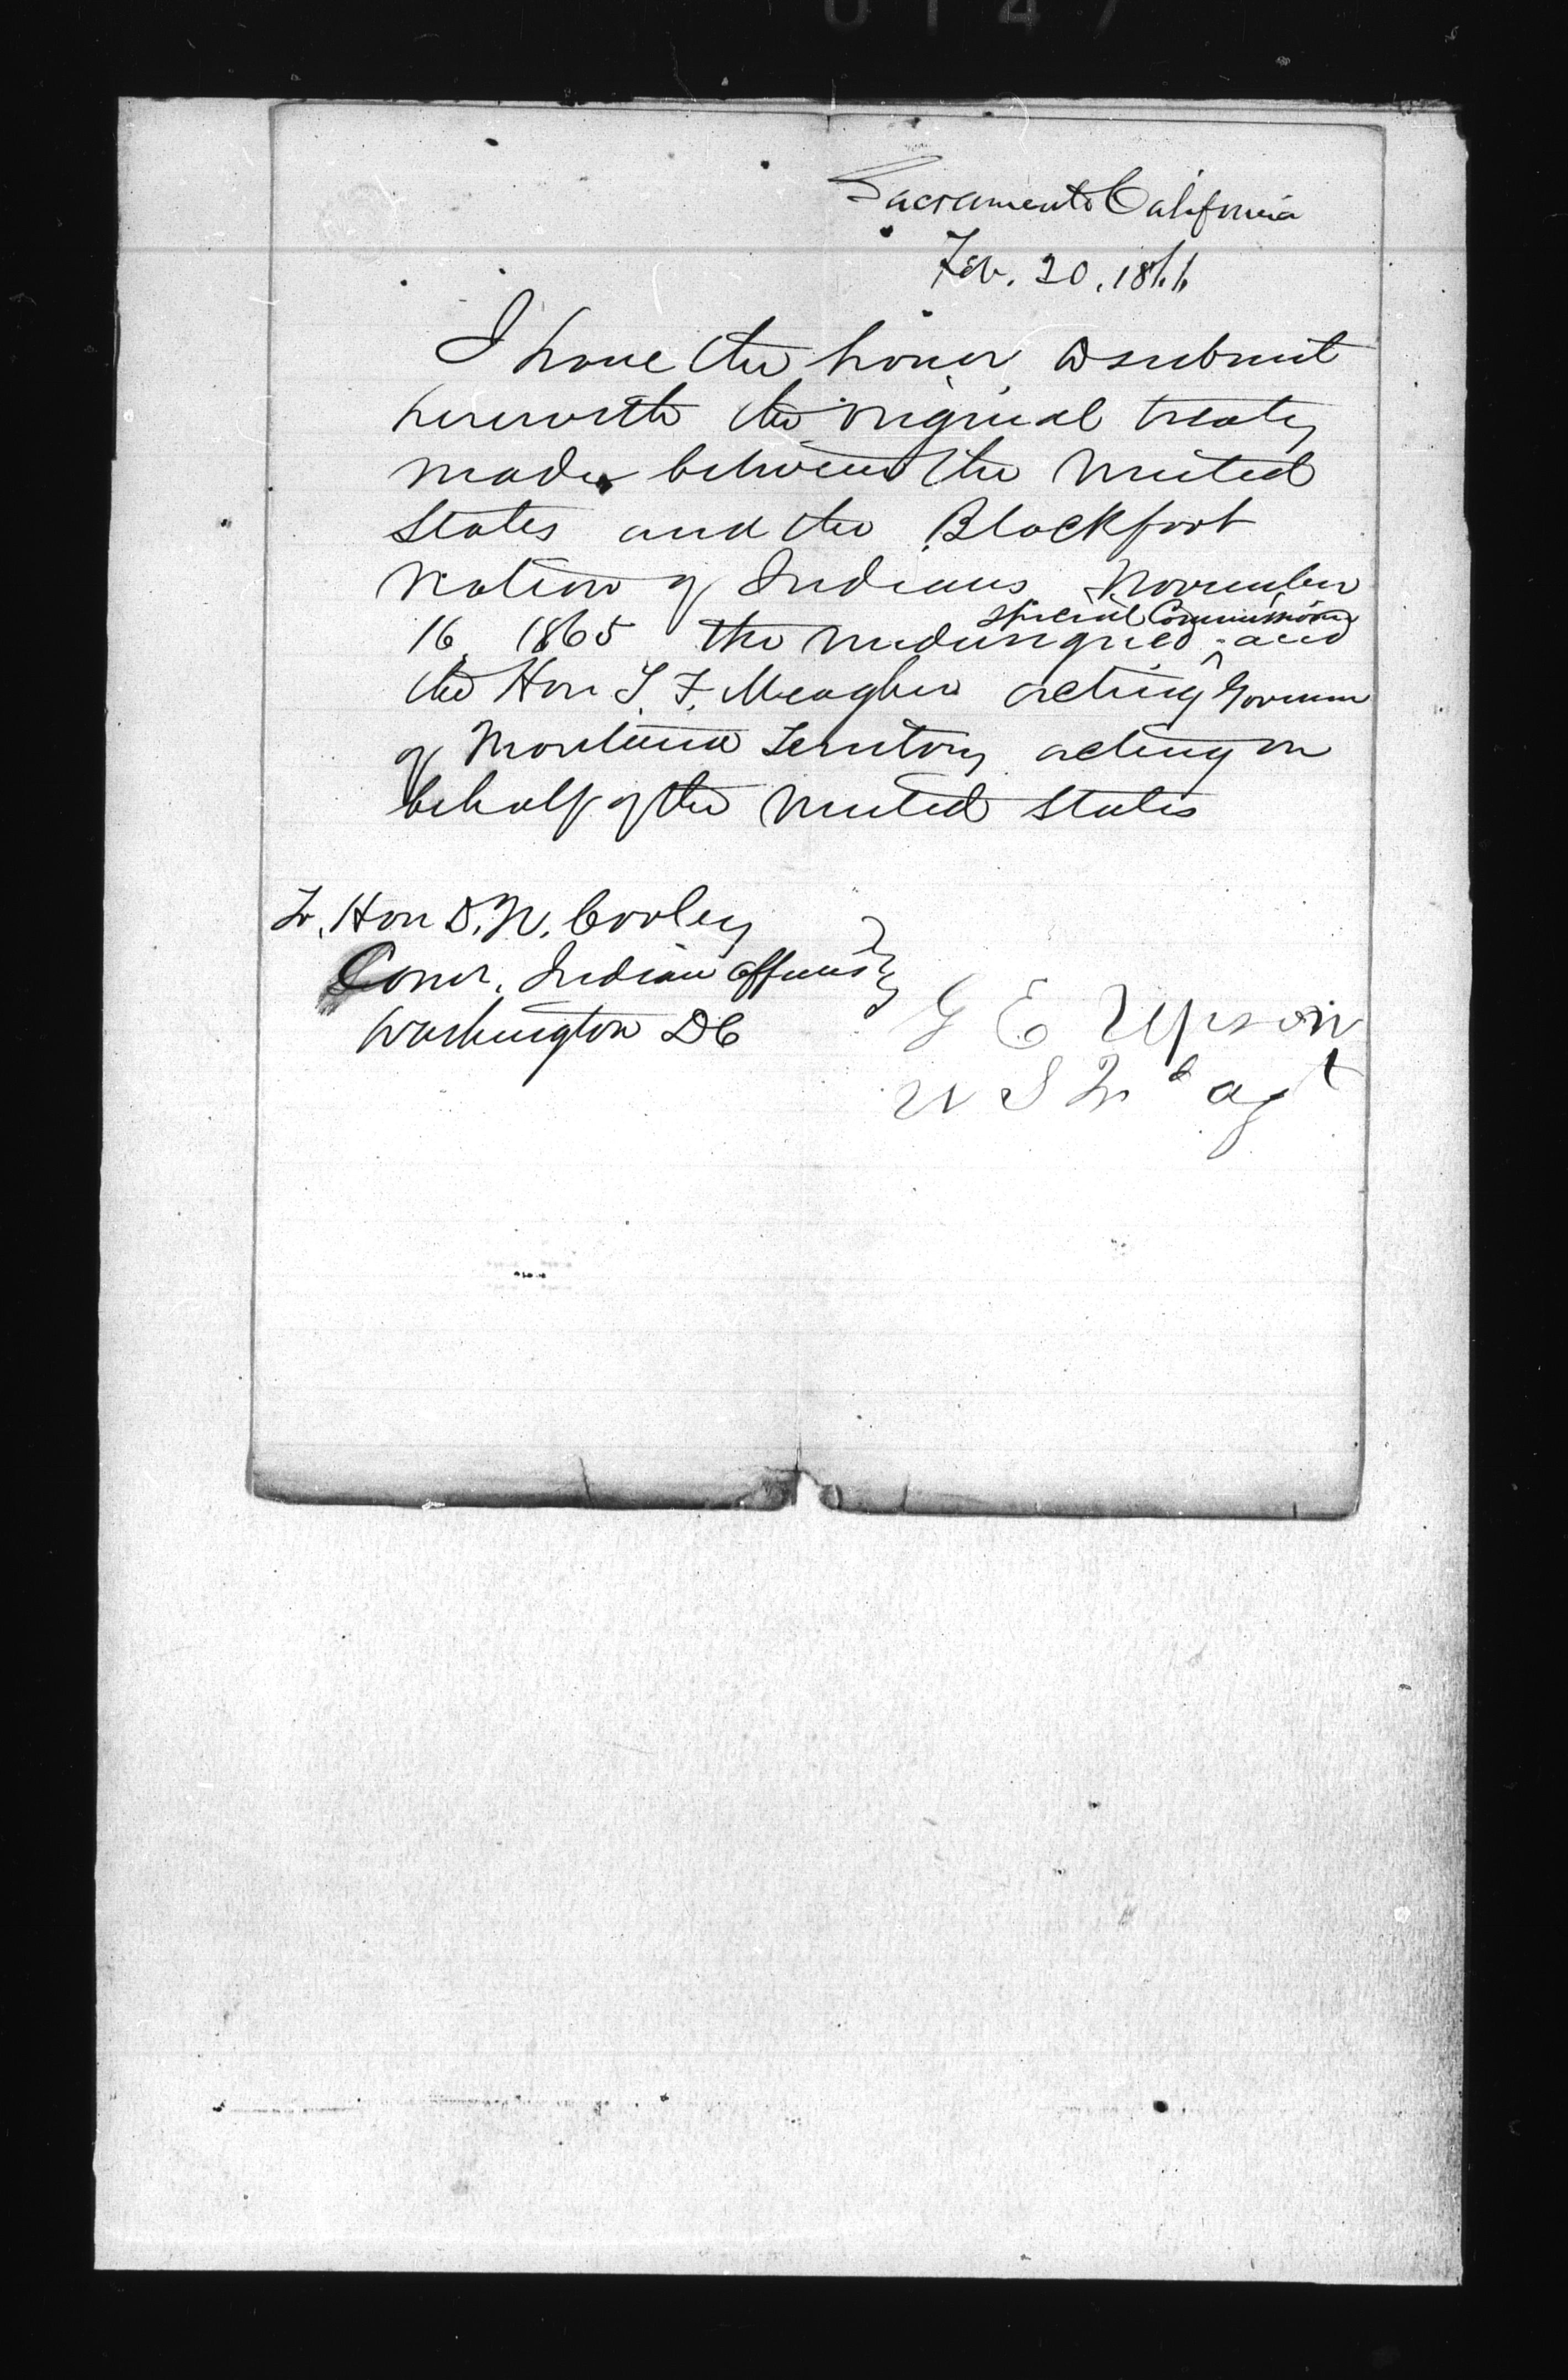 0147
Sacramento California
Feb. 20, 1866
I have the honor to submit
herewith the original treaty
made between the United
States and the Blackfoot
Nation of Indians November
16, 1865 the undersigned special Commissioner and
the Hon T. F. Meagher acting Governor
of Montana Territory acting on
behalf of the United States
To, Hon D. N. Cooley
Comr. Indian Affairs
Washington DC
G E Upson
U S Ind agt